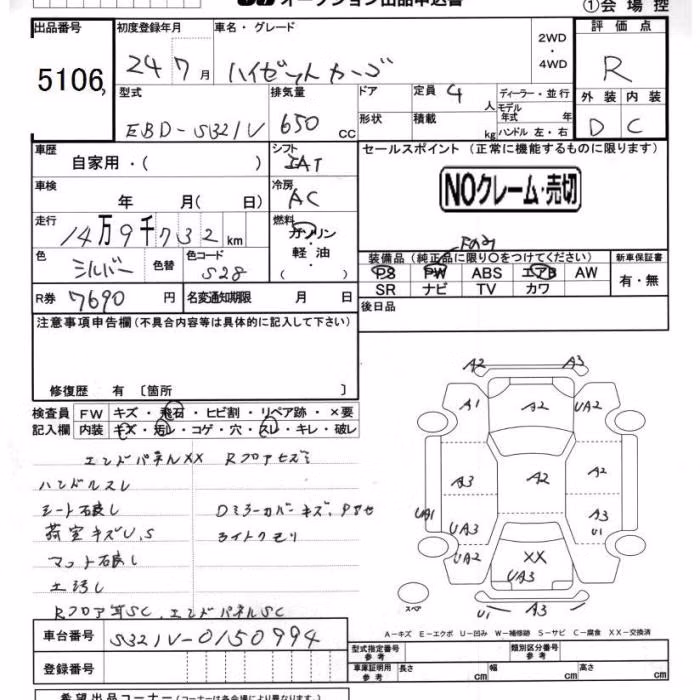 オークション出品申込書
①会場控
出品番号 初度登録年月 車名・グレード 2WD・4WD 評価点
5106 24年7月 ハイゼットカーゴ R
型式 排気量 ドア 定員 4人 ディーラー・並行 外装 内装
EBD-S321V 650cc 形状 積載 kg モデル年式 年 ハンドル 左・右 D C
車歴 シフト セールスポイント (正常に機能するものに限ります)
自家用・( ) IAT
車検 冷房 NOクレーム・売切
年 月( 日) AC
走行 燃料
14万9千732km ガソリン・軽油
色 色替 色コード 装備品 (純正品に限り○をつけてください) 新車保証書
シルバー S28 PS PW ABS エアB AW 有・無
SR ナビ TV カワ
R券 7690円 名変通知期限 月 日 後日品
注意事項申告欄 (不具合内容等は具体的に記入して下さい)
修復歴 有 〔箇所 〕
検査員記入欄 FW キズ・飛石・ヒビ割・リペア跡・×要
内装 キズ・汚レ・コゲ・穴・スレ・キレ・破レ
エンドパネルXX Rフロアヒズミ
ハンドルスレ
シート石良し
Dミラーカバーキズ、
荷室キズU,S
ライトクモリ
マット石良し
土汚し
Rフロア等SC、エンドパネルSC
A2 A3
A1 A2 UA2
A3 A2 A2
UA1 UA3 A3 U1
UA2 XX UA3
スペア U1 A3
A-キズ E-エクボ U-凹み W-補修跡 S-サビ C-腐食 XX-交換済
車台番号 S321V-0150994
型式指定番号 参考 類別区分番号 参考
登録番号 車庫証明用 参考 長さ cm 幅 cm 高さ cm
希望出品コーナー (コーナーは各会場により異なります。)